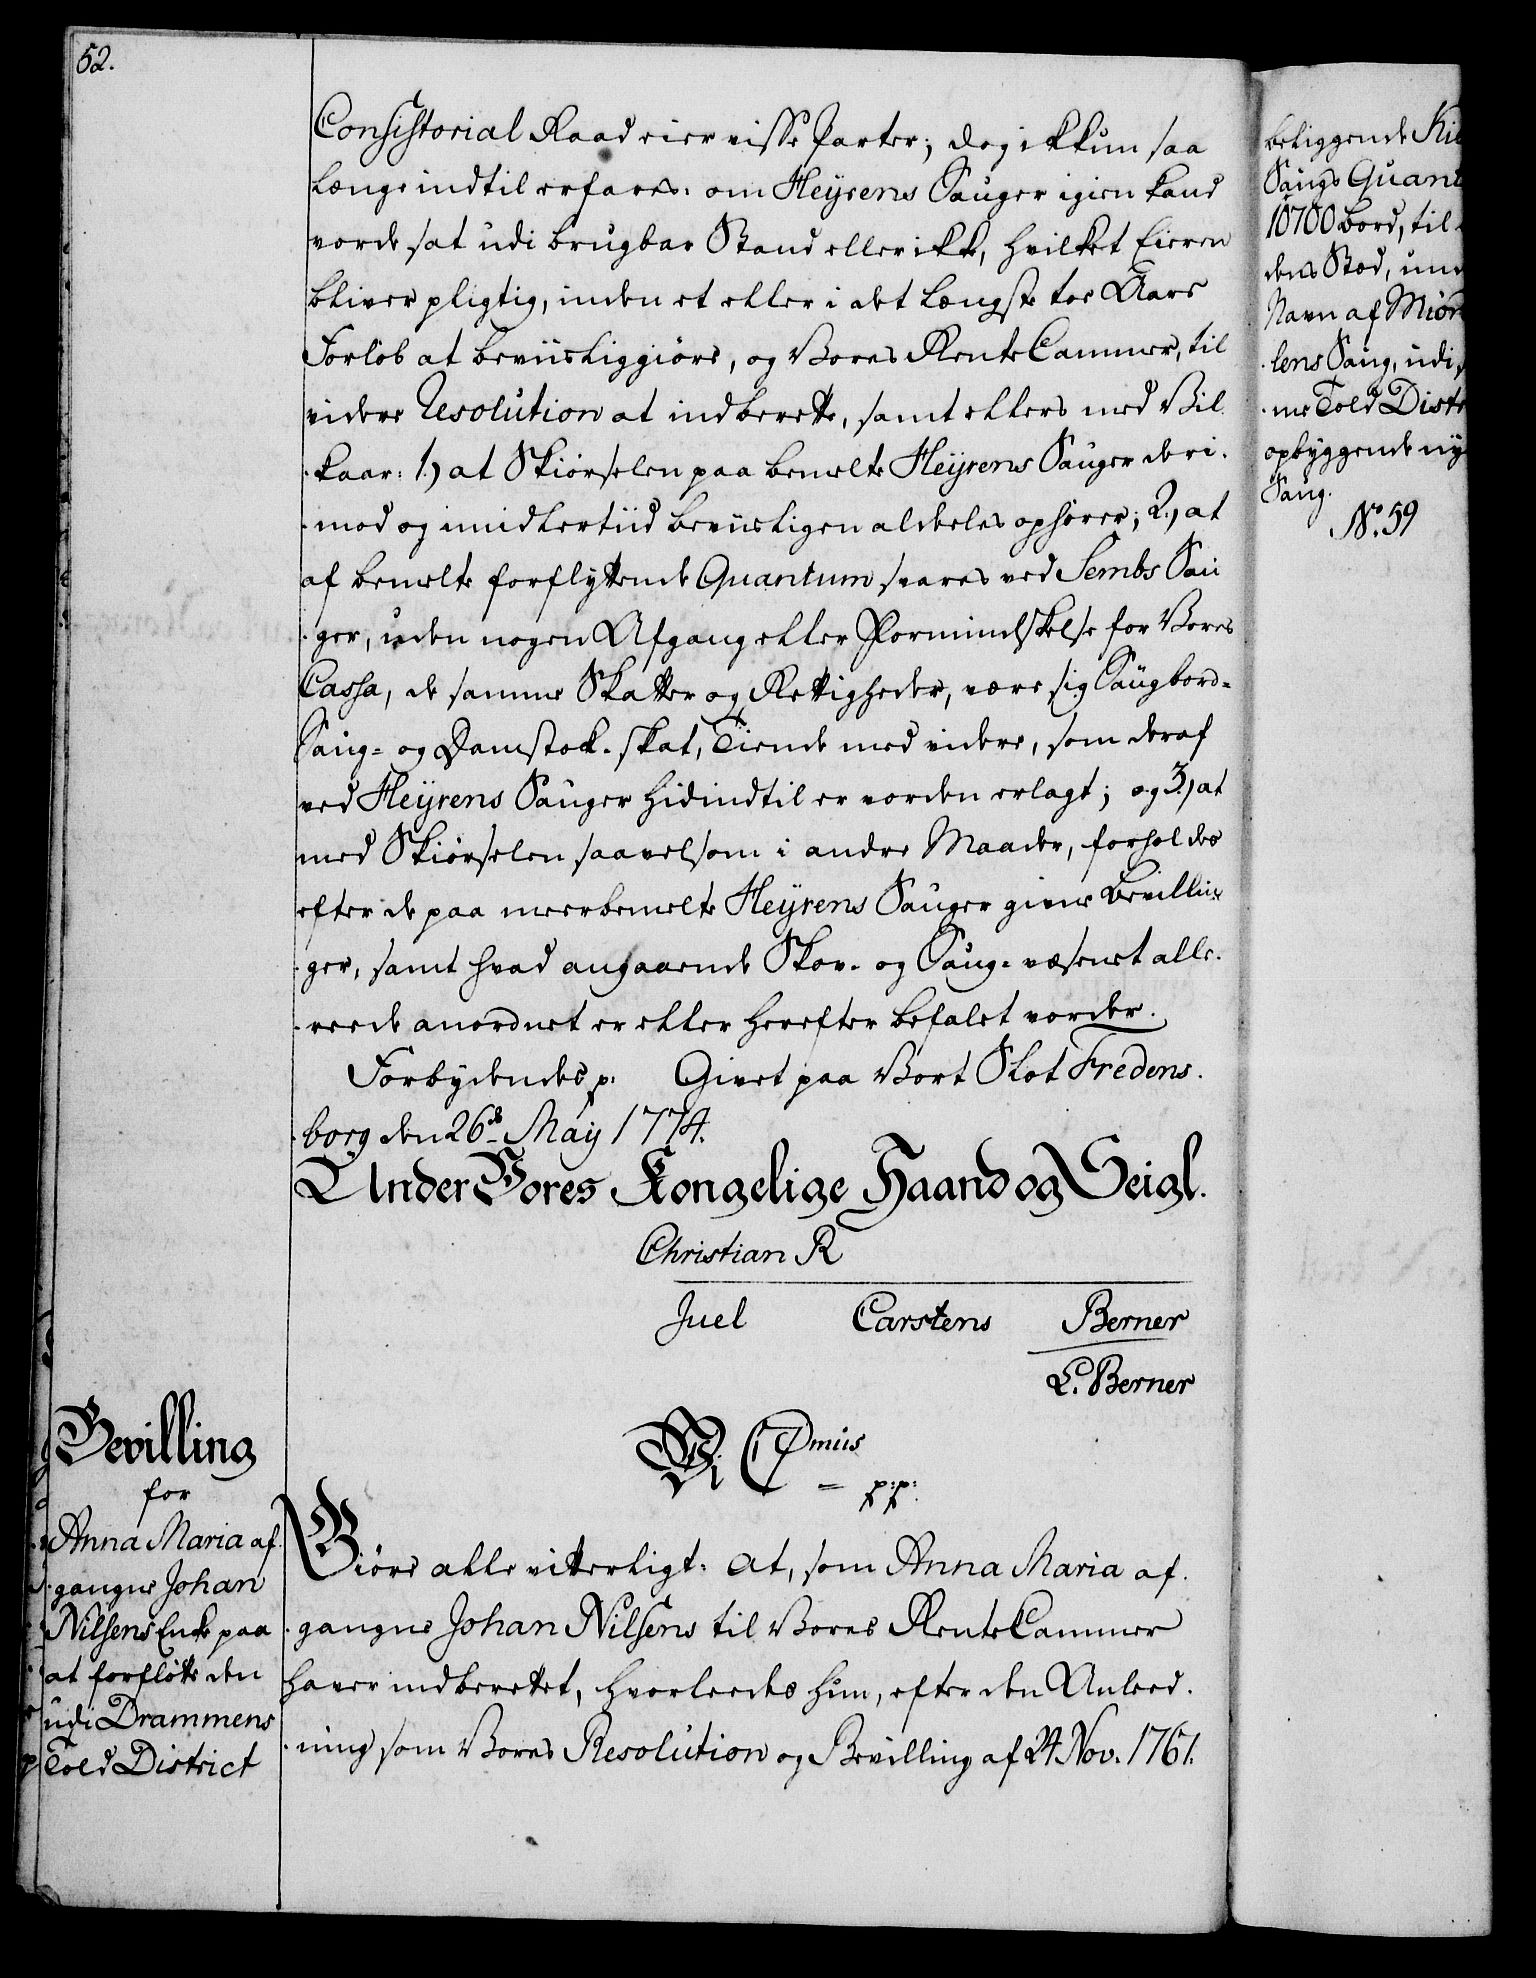 52.
Consistorial Raad eier visse Parter; dog ikkun saa
længe indtil erfares: om Heyrens Sauger igien kand
vorde sat udi brugbar Stand eller ikke, hvilket Eieren
bliver pligtig, inden et eller i det længste toe Aars
Forløb at beviisliggiøre, og Vores Rente Cammer, til
videre Resolution at indberette, samt ellers med Vil-
kaar: 1.) at Skiørselen paa bemelte Heyrens Sauger deri-
mod og imidlertiid beviisligen aldeeles ophører; 2.) at
af bemelte forflyttende Quantum svares ved Sembs Sau
ger, uden nogen Afgang eller Formindskelse for Vores
Cassa, de samme Skatter og Rettigheder, være sig Saugbord-
Saug- og Damstok-skat, Tiende med videre, som deraf
ved Heyrens Sauger hidindtil er vorden erlagt; og 3.) at
med Skiørselen saavelsom i andre Maader, forholdes
efter de paa meerbemelte Heyrens Sauger givne Bevillin-
ger, samt hvad angaaende Skov- og Saug-væsenet alle-
reede anordnet er eller herefter befalet vorder.
Forbydendes p: Givet paa Vort Slot Fredens-
borg den 26de May 1774.
Under Vores Kongelige Haand og Seigl.
Christian R
Juel Carstens Berner
L. Berner
Bevilling
for
Anna Maria af-
gangne Johan
Nilsens Enke paa
at forflötte den
udi Drammens
Told District
Vi C 7mus
p:p:
Giöre alle vitterligt: At, som Anna Maria af-
gangne Johan Nilsens til Vores Rente Cammer
haver indberettet, hvorleedes hun, efter den Anleed-
ning som Vores Resolution og Bevilling af 24 Nov. 1767.
beliggende
Saugs Quant
10700 bord, til
dens Sted, un
Navn af Miör
lens Saug, udi
me Told Distr
opbyggende ny
Saug.
No. 59